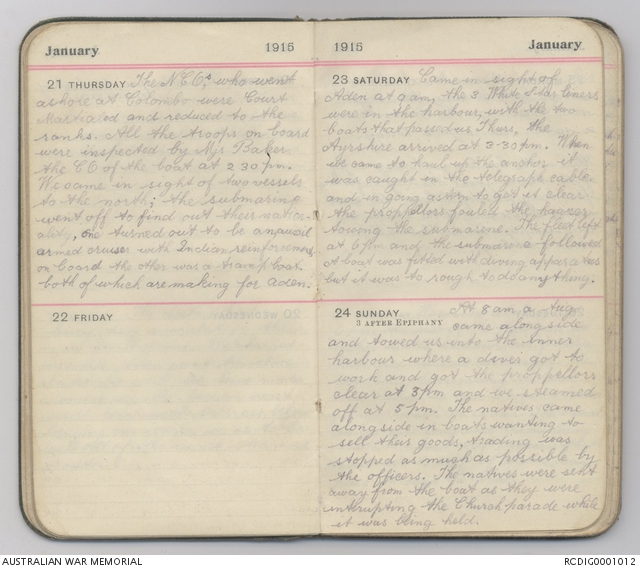 January 1915
21 THURSDAY The N.C.O's, who went
ashore at Colombo were Court
Martialod and reduced to the
ranks. All the troops on board
were inspected by Mjr Baker
the CO of the boat at 2 30 pm.
We came in sight of two vessels
to the north; the submarine
went off to find out their nation-
ality, one turned out to be an
armed cruiser with Indian reinforcements
on board the other was a tramp boat.
both of which are making for Aden.
22 FRIDAY
1915 January
23 SATURDAY Came in sight of
Aden at 9am, the 3 White Star liners
were in the harbour, with the two
boats that passed us Thurs, the
Ayrshire arrived at 3-30pm. When
we came to haul up the anchor it
was caught in the telegraph cable.
and in going astern to get it clear
the propellors fouled the hawser
towing the submarine. The fleet left
at 6pm and the submarine followed
a boat was fitted with diving apparatus
but it was to rough to do any thing.
24 SUNDAY
3 AFTER EPIPHANY
At 8 am a tug
came alongside
and towed us into the inner
harbour where a diver got to
work and got the proppellors
clear at 3pm and we steamed
off at 5 pm. The natives came
alongside in boats wanting to
sell their goods, trading was
stopped as much as possible by
the officers. The natives were sent
away from the boat as they were
interupting the Church parade while
it was being held.
AUSTRALIAN WAR MEMORIAL
RCDIG0001012